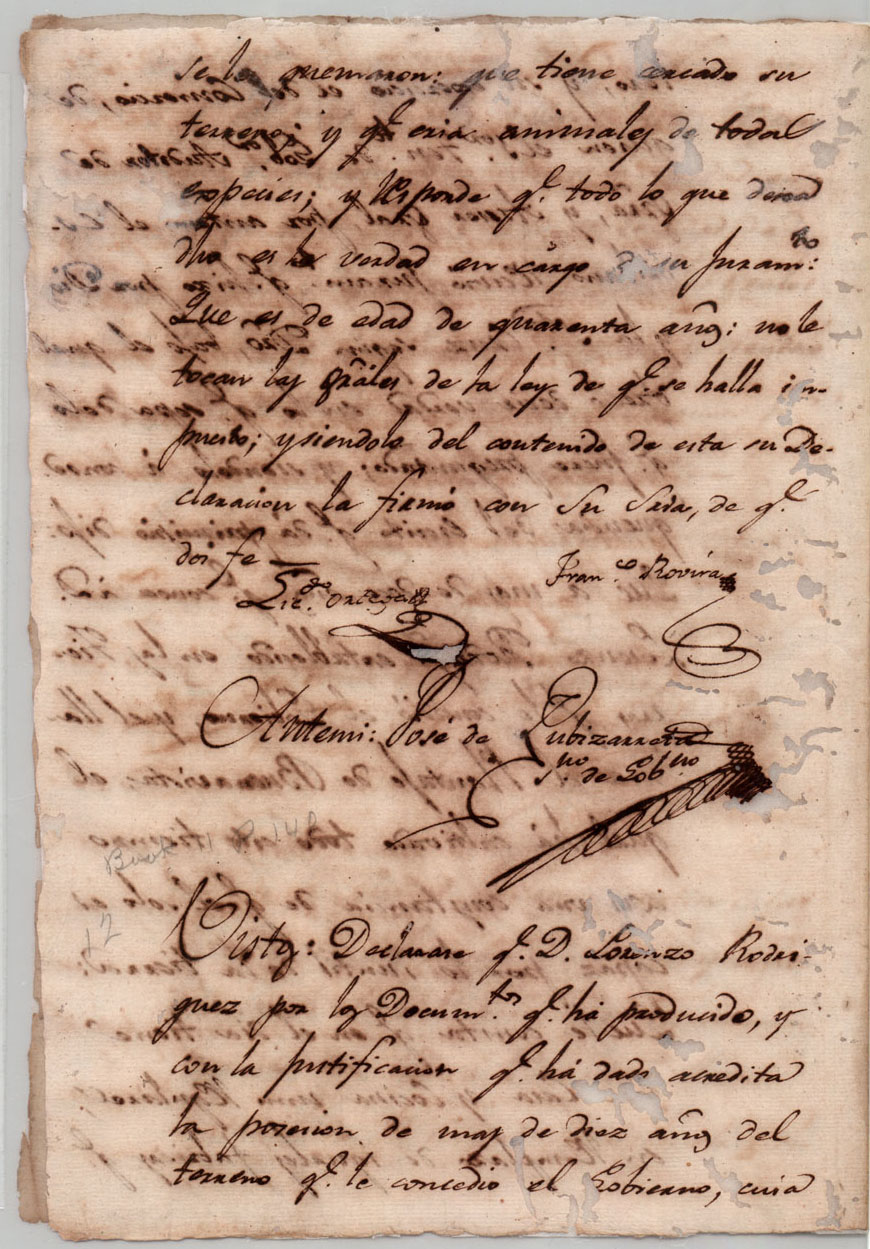 se le quemaron: que tiene cercado su
terreno; y q.e cria animales de todas
especies; y responde q.e todo lo que deja
dho es la verdad en cargo de su Juram.to:
Que es de edad de quarenta añs: no le
tocan las grãles de la ley de q.e se halla in-
puesto; y siendolo del contenido de esta su De-
claracion la firmó con Su Sria, de q.e
doi fe
Lic.do Ortega
Fran.co Rovira
Antemi: José de Zubizarreta
S.no de Gob.no
Book 1 P 148
12
Vistos: Declarase q.e D. Lorenzo Rodri-
guez por los Docum.tos q.e há producido, y
con la justificacion q.e há dado acredita
la posesion de mas de diez años del
terreno q.e le concedio el Gobierno, cuia